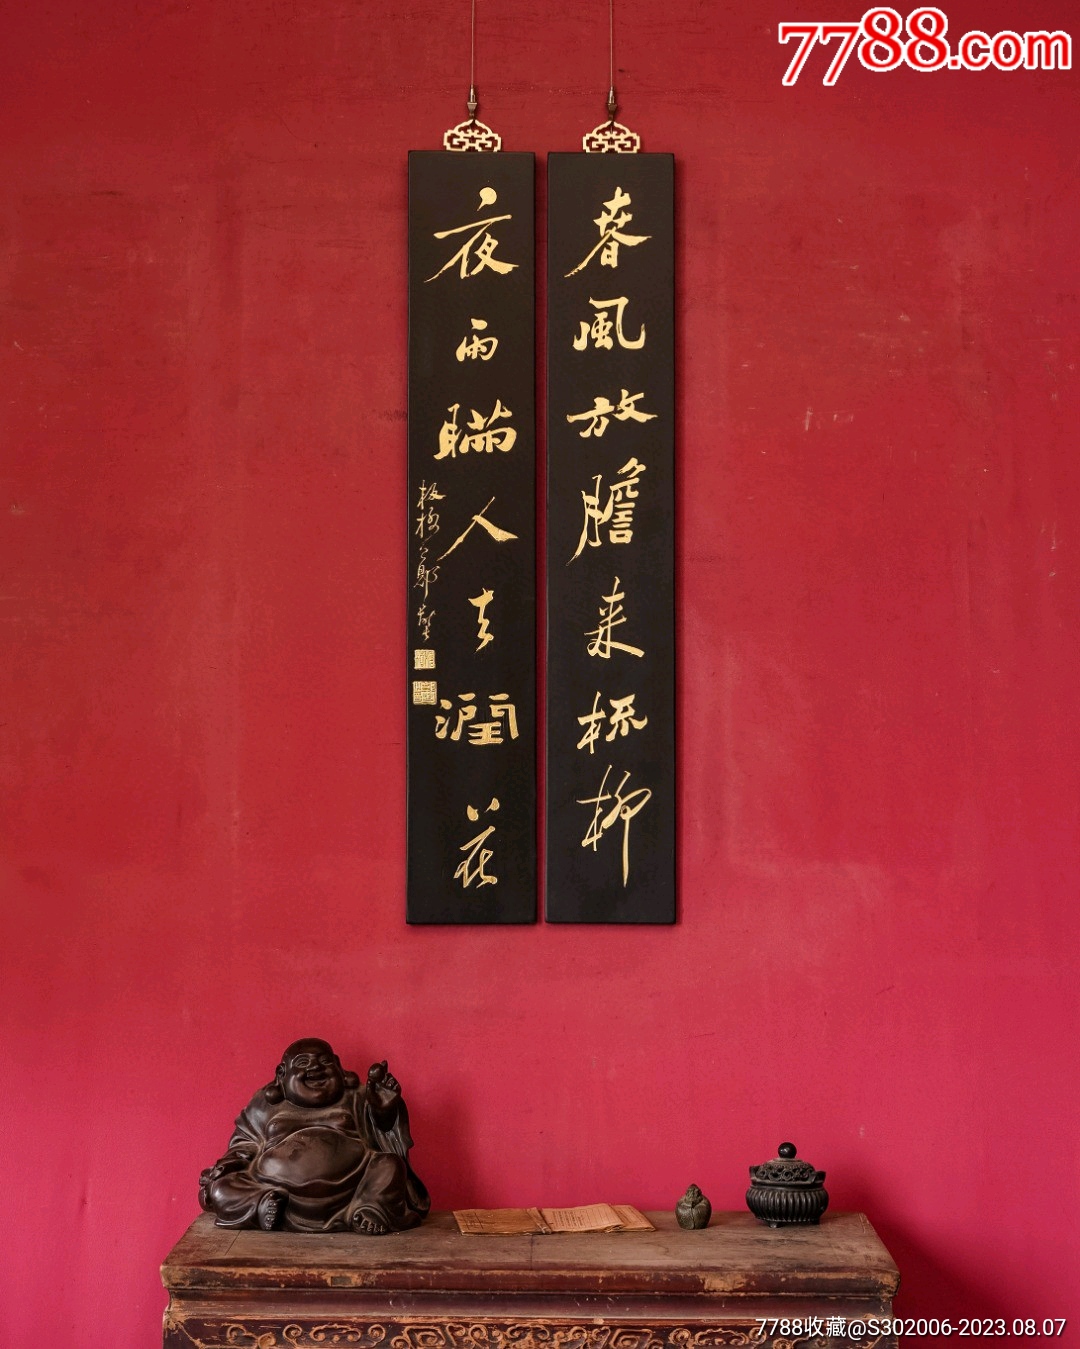 7788.com
春風放膽来梳柳
夜雨瞞人去潤花
板橋鄭燮
7788收藏@S302006-2023.08.07